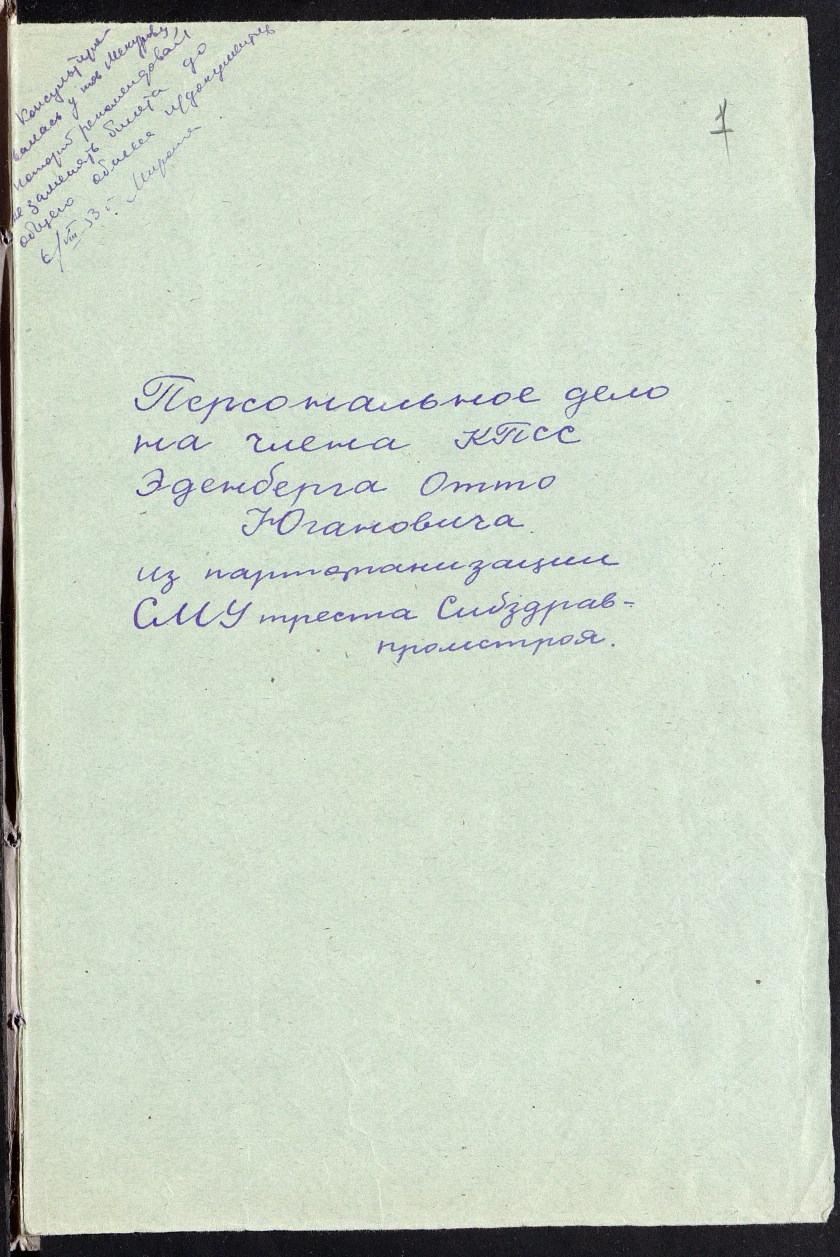 Консультиро-
валась у тов
который рекомендовал
не заменять билета до
общего обмена п/документов
6/VIII 53 г.
1
Персональное дело
на члена КПСС
Эденберга Отто
Югановича
из парторганизации
СМУ треста Сибздрав-
промстроя.